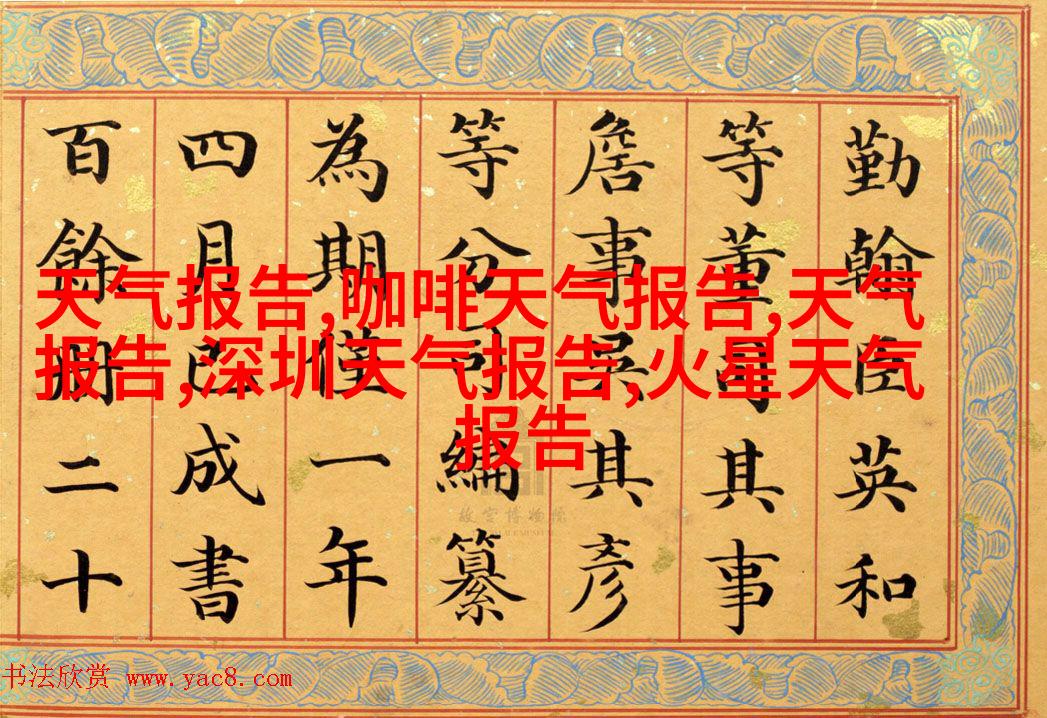 勤翰臣英和
等董司其事
詹事吳其彥
等分司編纂
為期僅一年
四月已成書
百餘冊二十
天气报告,咖啡天气报告,天气
报告,深圳天气报告,火星天气
报告
故宮博物院
书法欣赏 www.yac8.com